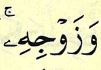 وَزَوْجِهِۦۚ